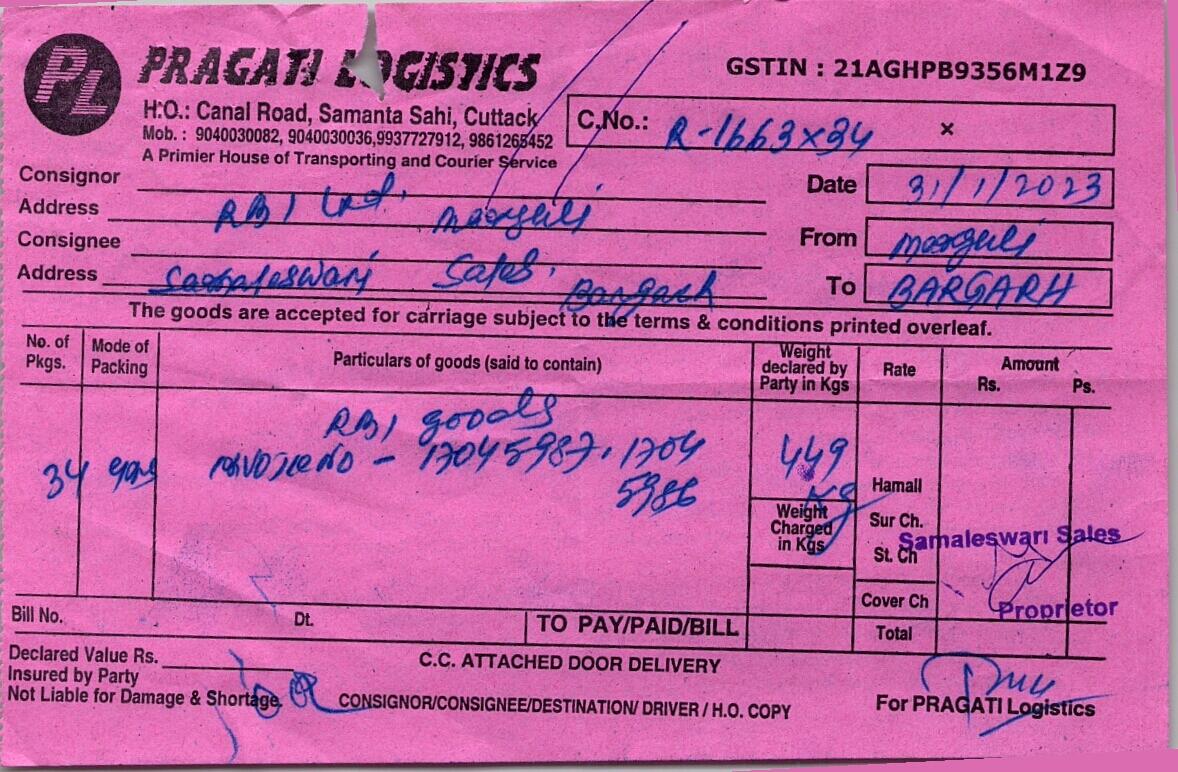 PL PRAGATI LOGISTICS
GSTIN : 21AGHPB9356M1Z9
H.O.: Canal Road, Samanta Sahi, Cuttack
Mob. : 9040030082, 9040030036,9937727912, 9861265452
A Primier House of Transporting and Courier Service
C.No.: R-1663x34 x
Consignor
Date 31/1/2023
Address RBI Ltd.
Consignee
From
Address Sales, Bargarh
To BARGARH
The goods are accepted for carriage subject to the terms & conditions printed overleaf.
No. of Pkgs. Mode of Packing Particulars of goods (said to contain) Weight declared by Party in Kgs Rate Amount Rs. Ps.
RBI goods
34 - 17045987, 1704 449
5986 Kg
Hamall
Weight Charged in Kgs
Sur Ch.
Samaleswari Sales
St. Ch
Cover Ch
Proprietor
Bill No. Dt. TO PAY/PAID/BILL Total
Declared Value Rs.
C.C. ATTACHED DOOR DELIVERY
Insured by Party
Not Liable for Damage & Shortage. CONSIGNOR/CONSIGNEE/DESTINATION/ DRIVER / H.O. COPY For PRAGATI Logistics